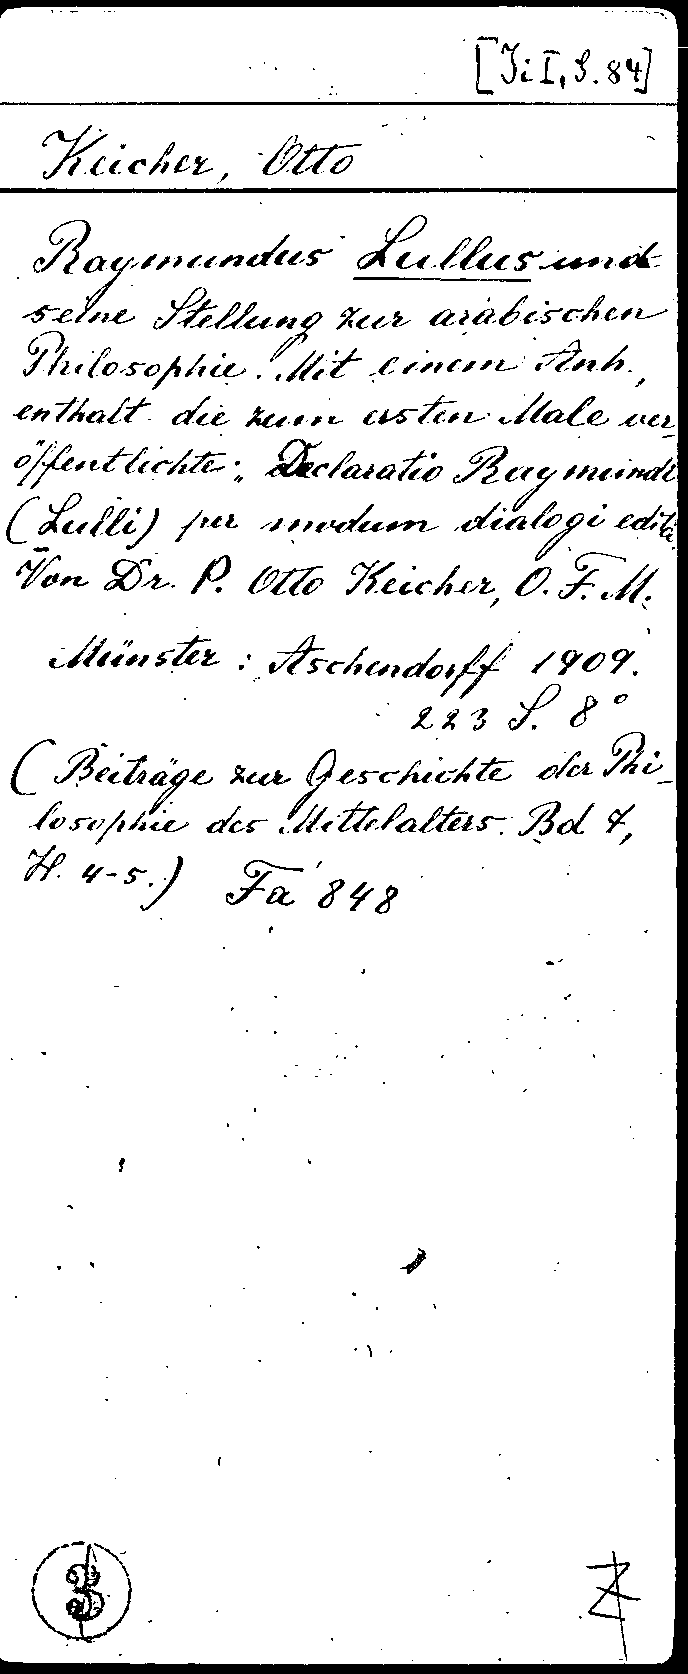 [Ji I, S. 84]
Keicher, Otto
Raymundus Lullus und
seine Stellung zur arabischen
Philosophie. Mit einem Anh.,
enthalt. die zum ersten Male ver-
öffentlichte: „Declaratio Raymundi
(Lulli) per modum dialogi edita“
Von Dr. P. Otto Keicher, O. F. M.
Münster: Aschendorff 1909.
223 S. 8°
(Beiträge zur Geschichte der Phi-
losophie des Mittelalters. Bd 7,
H. 4-5.) Fa 848